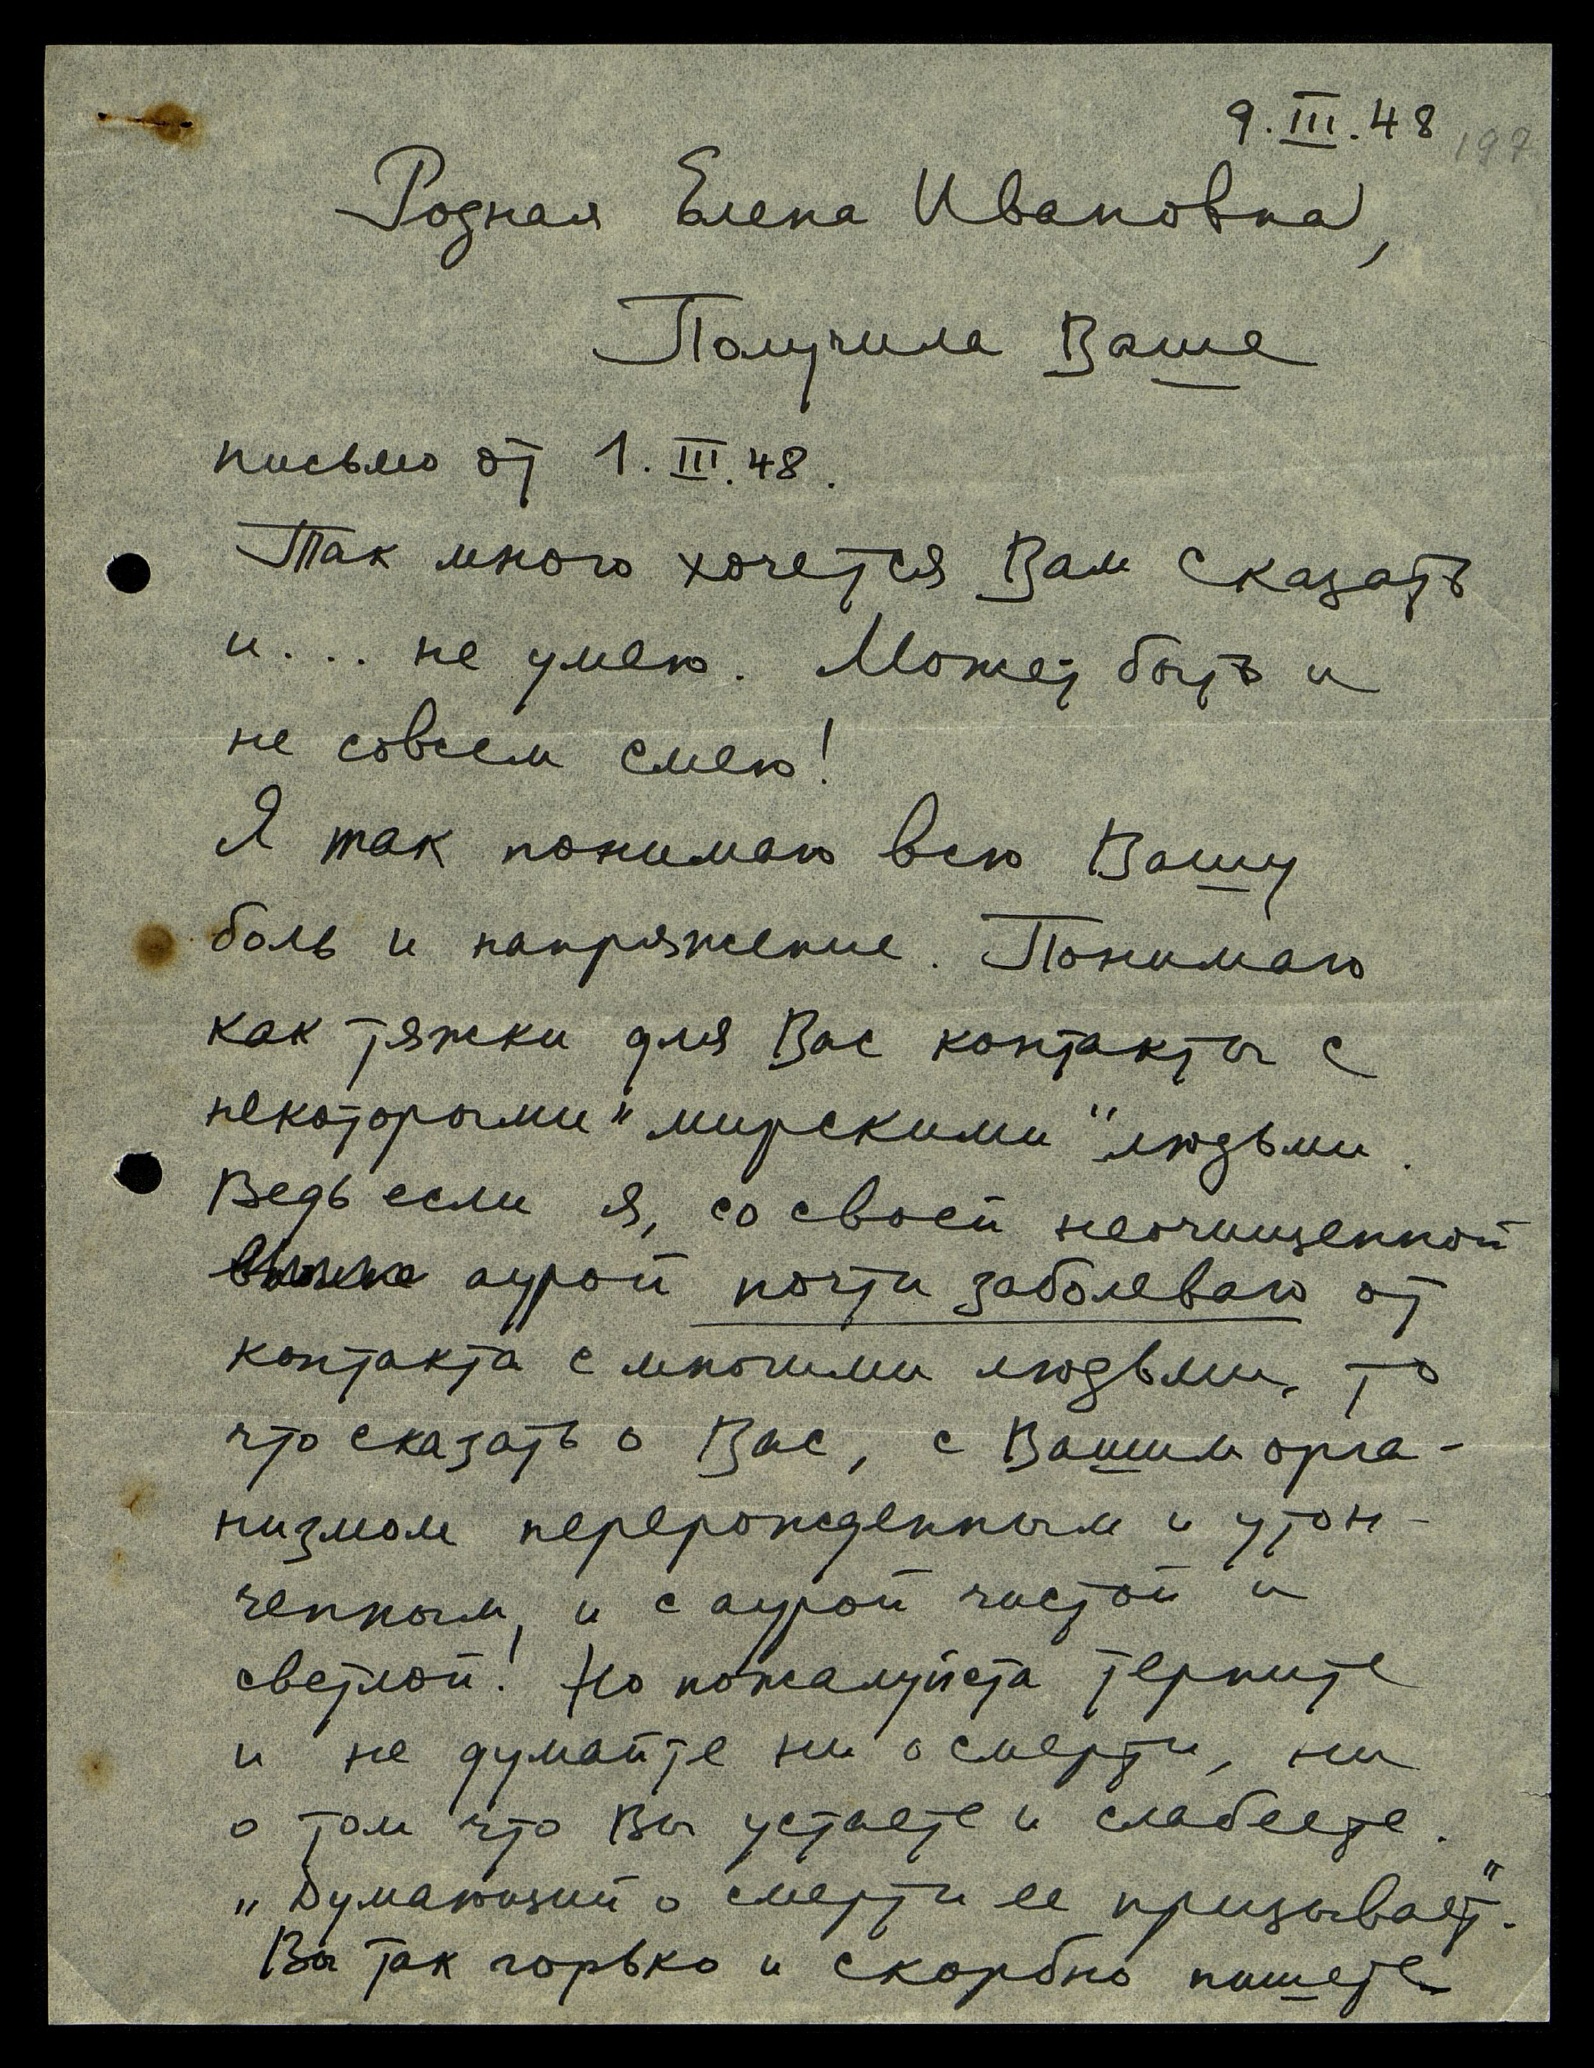 9.III.48
197
Родная Елена Ивановна,
Получила Ваше
письмо от 1.III.48.
Так много хочется Вам сказать
и... не умею. Может быть и
не совсем смею!
Я так понимаю всю Вашу
боль и напряжение. Понимаю
как тяжки для Вас контакты с
некоторыми "мирскими" людьми.
Ведь если я, со своей неочищенной
аурой почти заболеваю от
контакта с многими людьми, то
что сказать о Вас, с Вашим орга-
низмом перерожденным и утон-
ченным, и с аурой чистой и
светлой! Но пожалуйста терпите
и не думайте ни о смерти, ни
о том что Вы устаете и слабеете.
„Думающий о смерти ее призывает".
Вы так горько и скорбно пишете